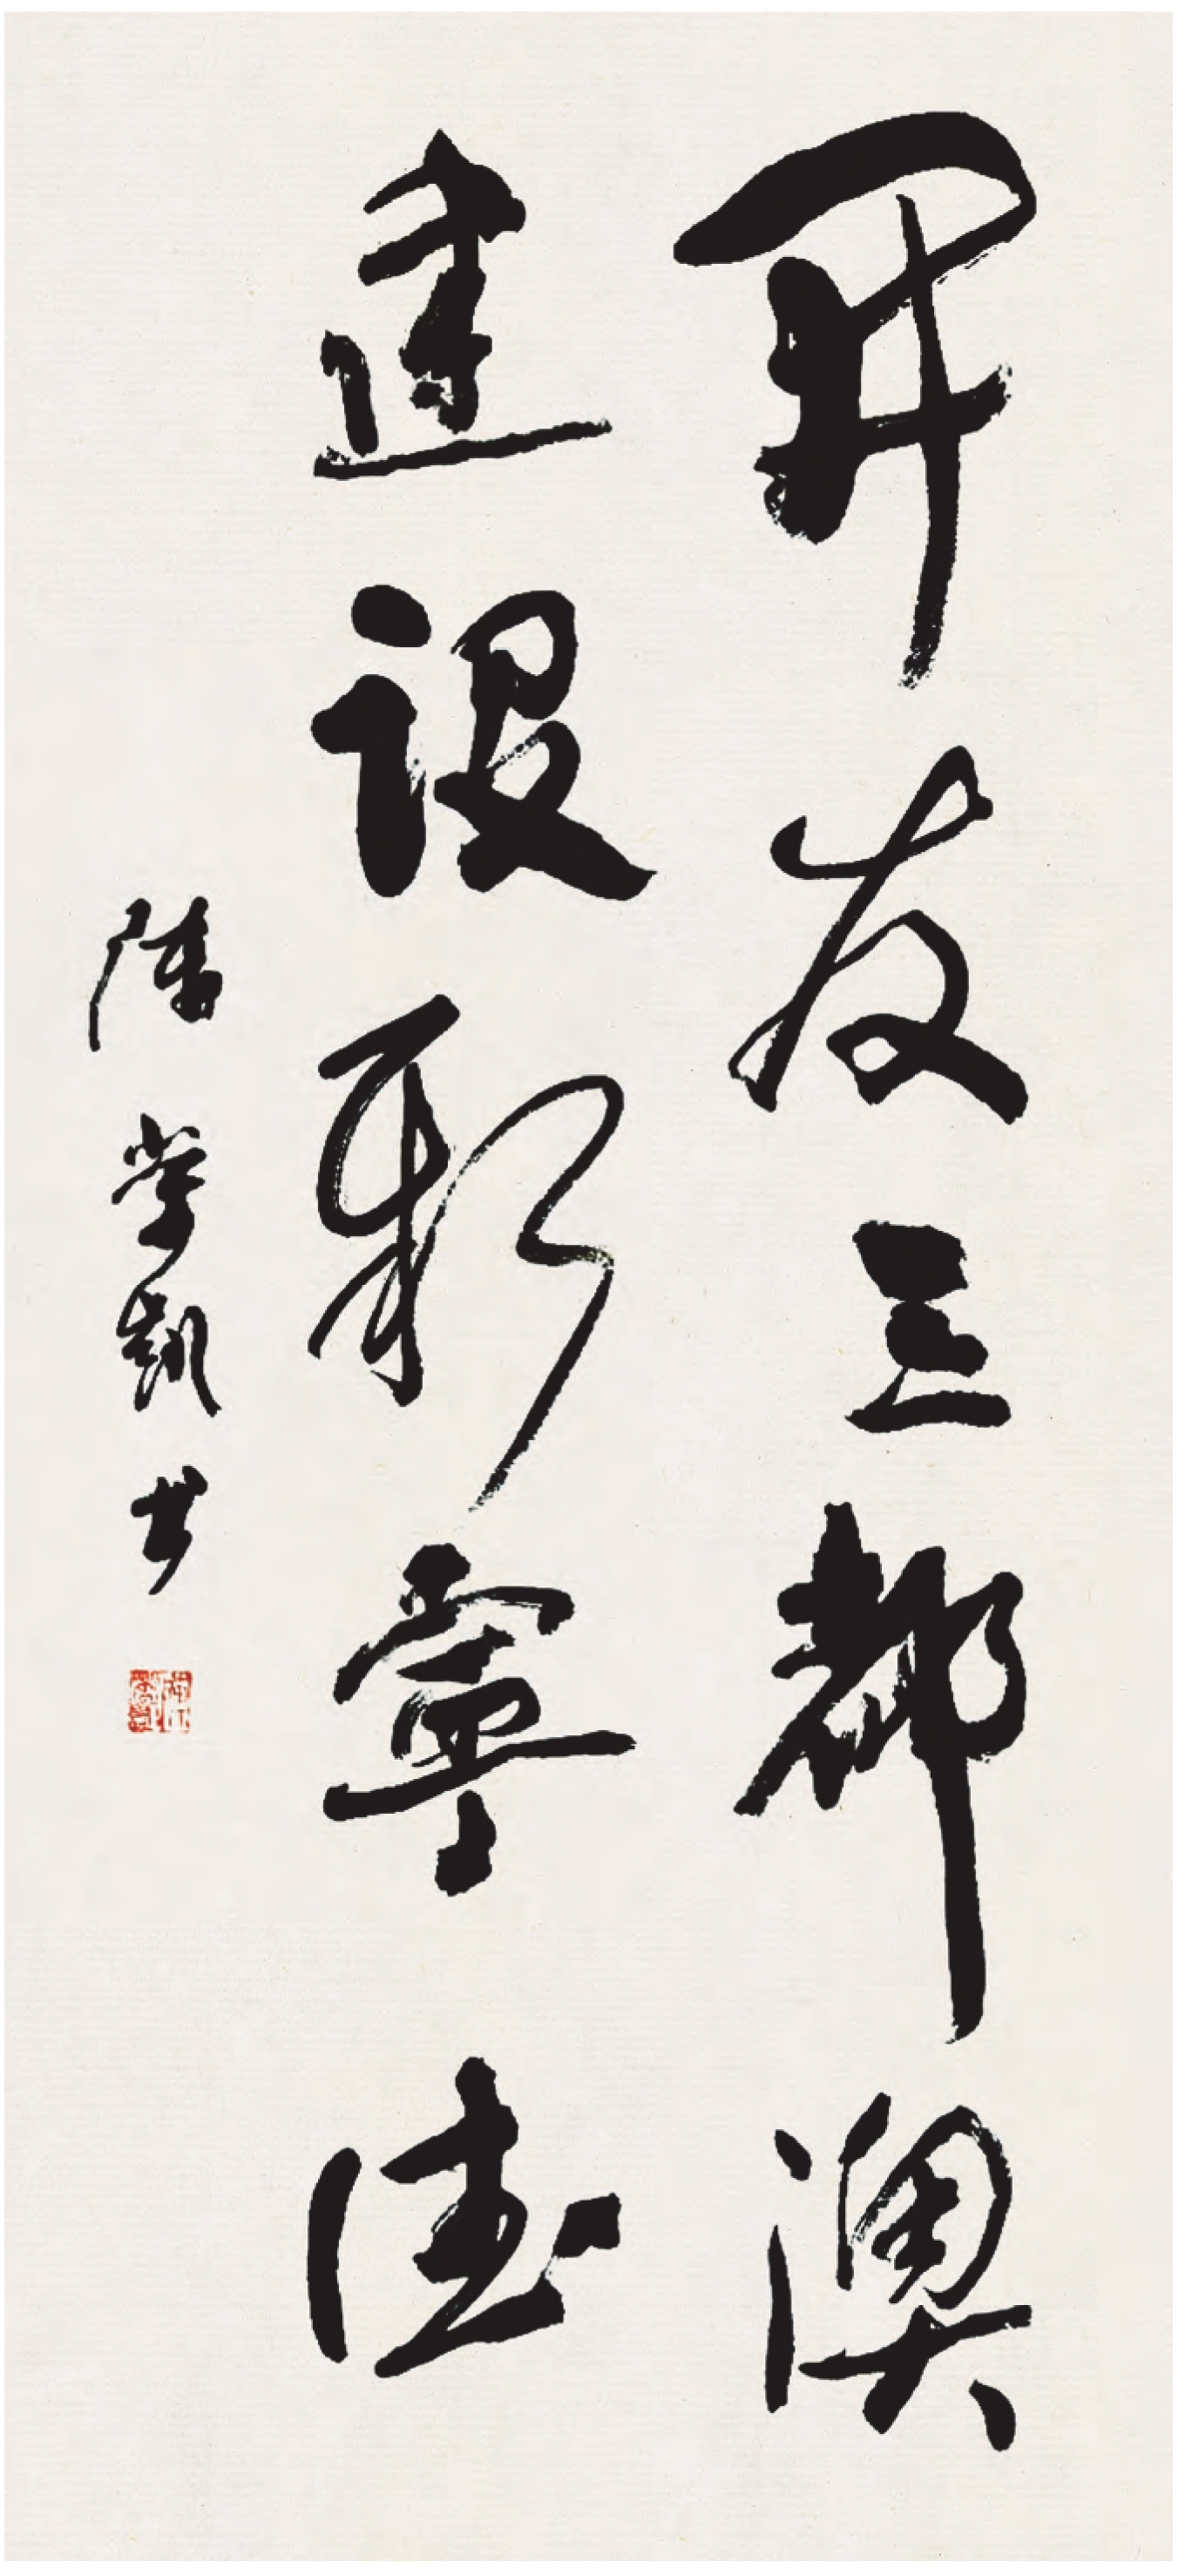 开发三都澳
建设新寧德
陈学凯书